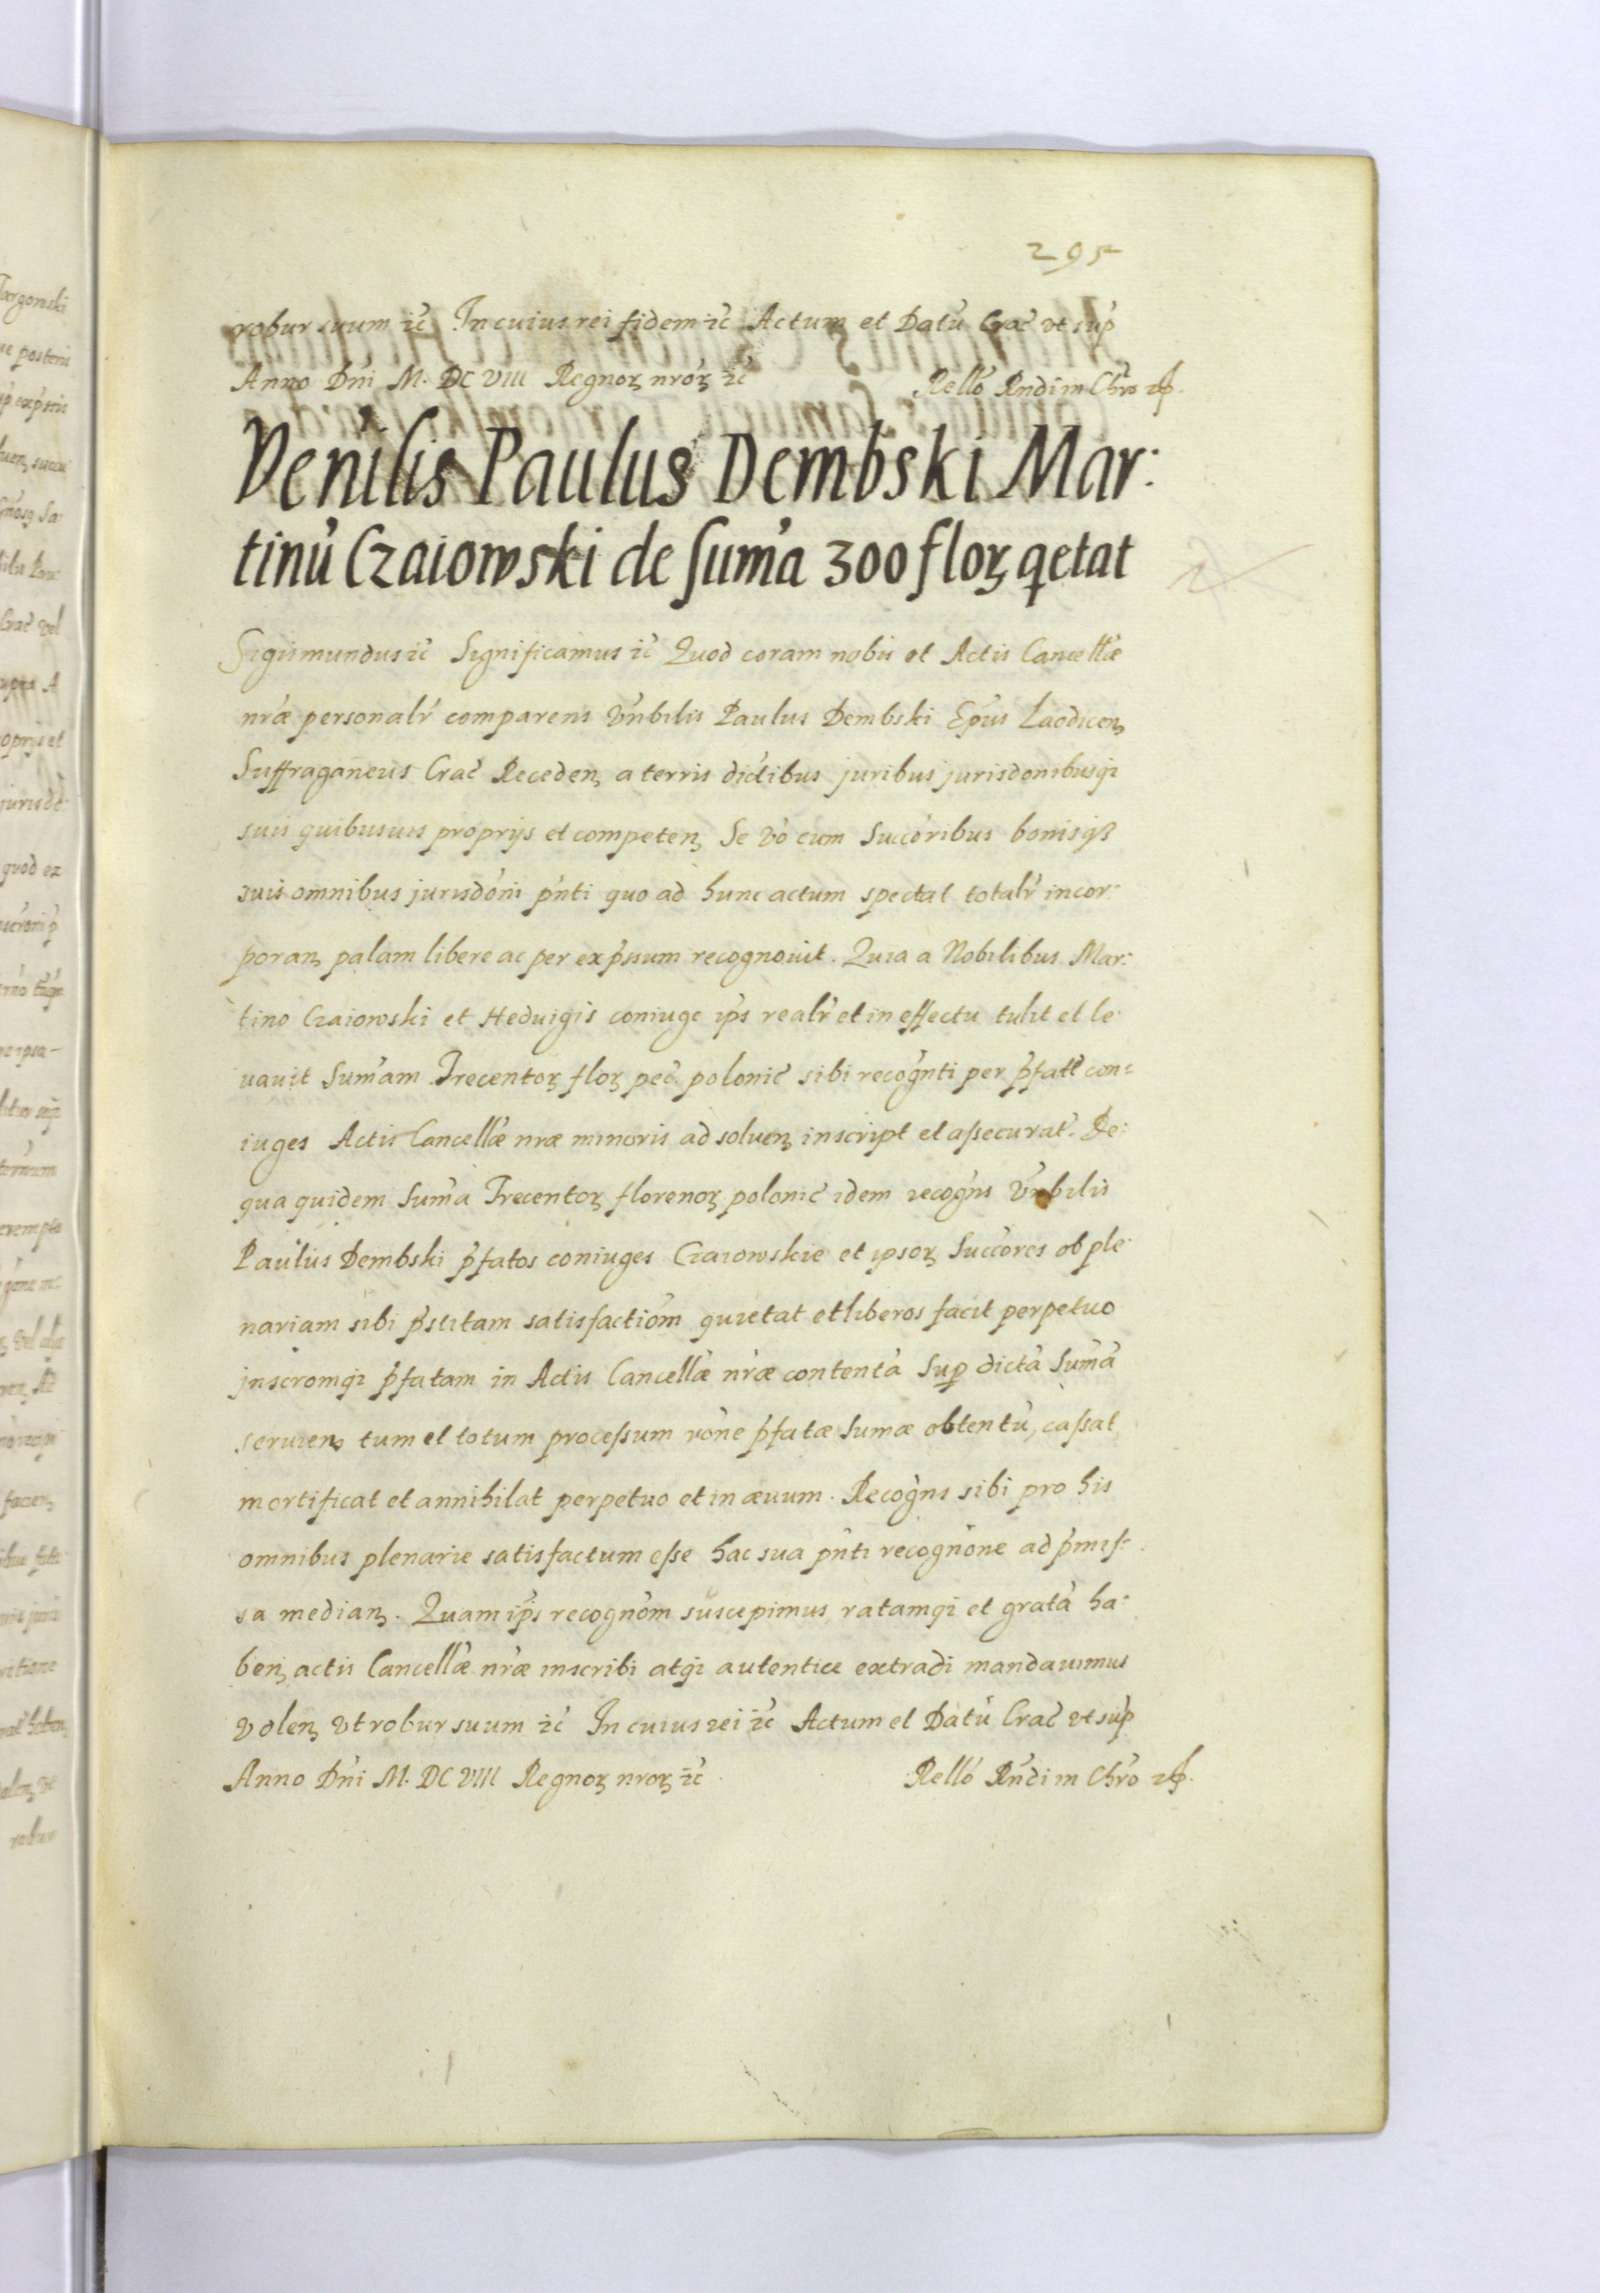 295
robur suum ꝛc̄ In cuius rei fidem ꝛc̄ Actum et Datū Crac̄ vt sup̄
Anno Dn̄i M. DC VIII Regnoꝝ nroꝝ ꝛc̄ Rellō Rn̄di in Chr̄o
Ven̄ilis Paulus Dembski Mar:
tinū Czaiowski de Sum̄a 300 floꝝ qetat
Sigismundus ꝛc̄ Significamus ꝛc̄ Quod coram nobis et Actis Cancellæ
nr̄æ personalr̄ comparens Vn̄bilis Paulus Dembski Ep̄us Laodicen̄
Suffraganeus Crac̄ Receden̄ a terris dictibus juribus jurisdonibusq̄
suis quibusuis proprijs et competen̄ Se vō cum Succōribus bonisqꝫ
suis omnibus jurisdōni pn̄ti quo ad hunc actum spectat totalr̄ incor:
poran̄ palam libere ac per exp̄ssum recognouit. Quia a Nobilibus Mar:
tino Czaiowski et Heduigis coniuge ip̄s realr̄ et in effectu tulit et le:
uauit Sum̄am Trecentoꝝ floꝝ pec̄ polonic̄ sibi recogn̄ti per p̄fatt̄ con:
iuges Actis Cancellæ nræ minoris ad soluen̄ inscript et assecurat̄. De:
qua quidem Sum̄a Trecentoꝝ florenoꝝ polonic̄ idem recogn̄s Vn̄bilis
Paulus Dembski p̄fatos coniuges Czaiowskie et ipsoꝝ Succōres ob ple:
nariam sibi p̄stitam satisfactiōm quietat et liberos facit perpetuo
jnscromqꝫ p̄fatam in Actis Cancellæ nr̄æ contentā Sup̄ dictā Sum̄ā
seruien̄ tum et totum processum rōne p̄fatæ Sumæ obtentū, cassat
mortificat et annihilat perpetuo et in æuum. Recogn̄s sibi pro his
omnibus plenarie satisfactum esse hac sua pn̄ti recognōne ad p̄mis:
sa median̄. Quam ip̄s recognōm suscepimus ratamqꝫ et gratā ha:
ben̄ actis Cancellæ nr̄æ inscribi atqꝫ autentice extradi mandauimus
volen̄ vt robur suum ꝛc̄ In cuius rei ꝛc̄ Actum et Datū Crac̄ vt sup̄
Anno Dn̄i M. DC VIII Regnoꝝ nroꝝ ꝛc̄ Rellō Rn̄di in Chr̄o